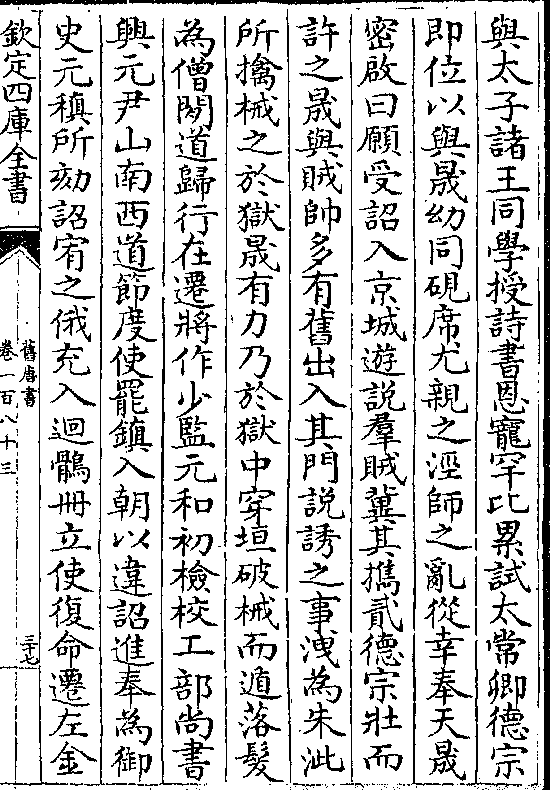 與太子諸王同學授詩書恩寵罕比累試太常卿德宗
即位以與晟幼同硯席尤親之涇師之亂從幸奉天晟
密啟曰願受詔入京城遊說羣賊冀其攜貳德宗壯而
許之晟與賊帥多有舊出入其門說誘之事洩為朱泚
所擒械之於獄晟有力乃於獄中穿垣破械而遁落髮
為僧閒道歸行在遷將作少監元和初檢校工部尚書
興元尹山南西道節度使罷鎮入朝以違詔進奉為御
史元稹所劾詔宥之俄充入迴鶻冊立使復命遷左金
欽定四庫全書
舊唐書
卷一百八十三
三十七